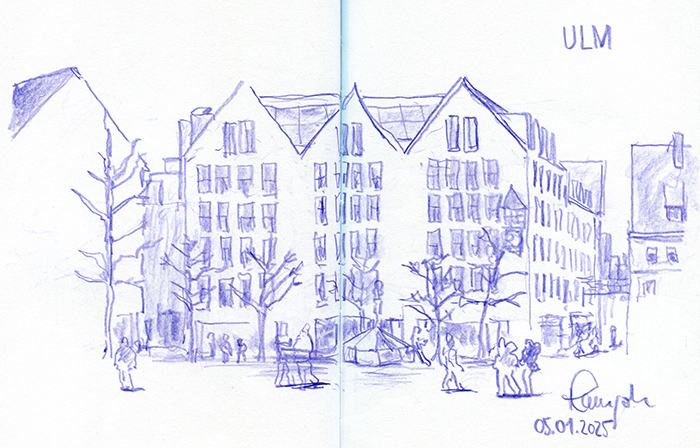 ULM
05.01.2025